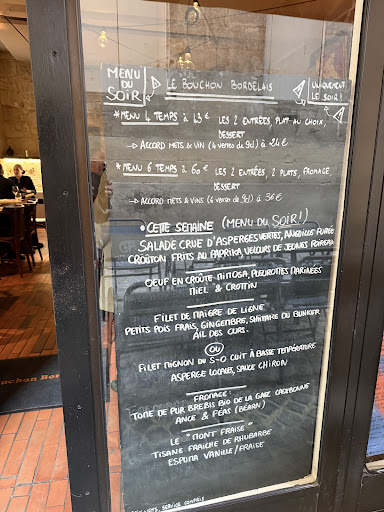 MENU DU SOIR
LE BOUCHON BORDELAIS
UNIQUEMENT LE SOIR!
* MENU 4 TEMPS à 43€ LES 2 ENTRÉES, PLAT AU CHOIX,
DESSERT
→ ACCORD METS & VIN (4 verres de 9cl) à 24€
* MENU 6 TEMPS à 60€ LES 2 ENTRÉES, 2 PLATS, FROMAGE,
DESSERT
→ ACCORD METS & VINS (6 verres de 9cl) à 36€
• CETTE SEMAINE (MENU DU SOIR!)
SALADE CRUE D'ASPERGES VERTES, ANGUILLES FUMÉES
CROÛTON FRITS AU PAPRIKA, VELOURS DE JEUNES POIREAUX
OEUF EN CROÛTE MIMOSA, PLEUROTTES MARINÉES
MIEL & CROTTIN
FILET DE MAIGRE DE LIGNE
PETITS POIS FRAIS, GINGEMBRE, SHIITAKE DU BUNKER
AIL DES OURS.
OU
FILET MIGNON DU S-O CUIT À BASSE TEMPÉRATURE
ASPERGE LOCALES, SAUCE CHIRON
FROMAGE:
TOME DE PUR BREBIS BIO DE LA GAEC CASSYBONNE
ANCE & FÉAS (BÉARN)
LE "MONT FRAISE"
TISANE FRAICHE DE RHUBARBE
ESPUMA VANILLE/FRAISE
SERVICE COMPRIS